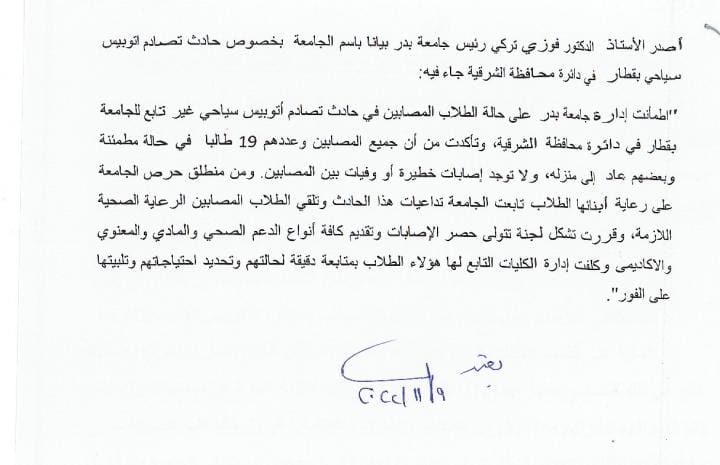 أصدر الأستاذ الدكتور فوزي تركي رئيس جامعة بدر بيانا باسم الجامعة بخصوص حادث تصادم اتوبيس
سياحي بقطار في دائرة محافظة الشرقية جاء فيه:
"اطمأنت إدارة جامعة بدر على حالة الطلاب المصابين في حادث تصادم أتوبيس سياحي غير تابع للجامعة
بقطار في دائرة محافظة الشرقية، وتأكدت من أن جميع المصابين وعددهم 19 طالبا في حالة مطمئنة
وبعضهم عاد إلى منزله، ولا توجد إصابات خطيرة أو وفيات بين المصابين. ومن منطلق حرص الجامعة
على رعاية أبنائها الطلاب تابعت الجامعة تداعيات هذا الحادث وتلقي الطلاب المصابين الرعاية الصحية
اللازمة، وقررت تشكل لجنة تتولى حصر الإصابات وتقديم كافة أنواع الدعم الصحي والمادي والمعنوي
والاكاديمى وكلفت إدارة الكليات التابع لها هؤلاء الطلاب بمتابعة دقيقة لحالتهم وتحديد احتياجاتهم وتلبيتها
على الفور".
يعتمد
٢٠٢٢/١١/٩